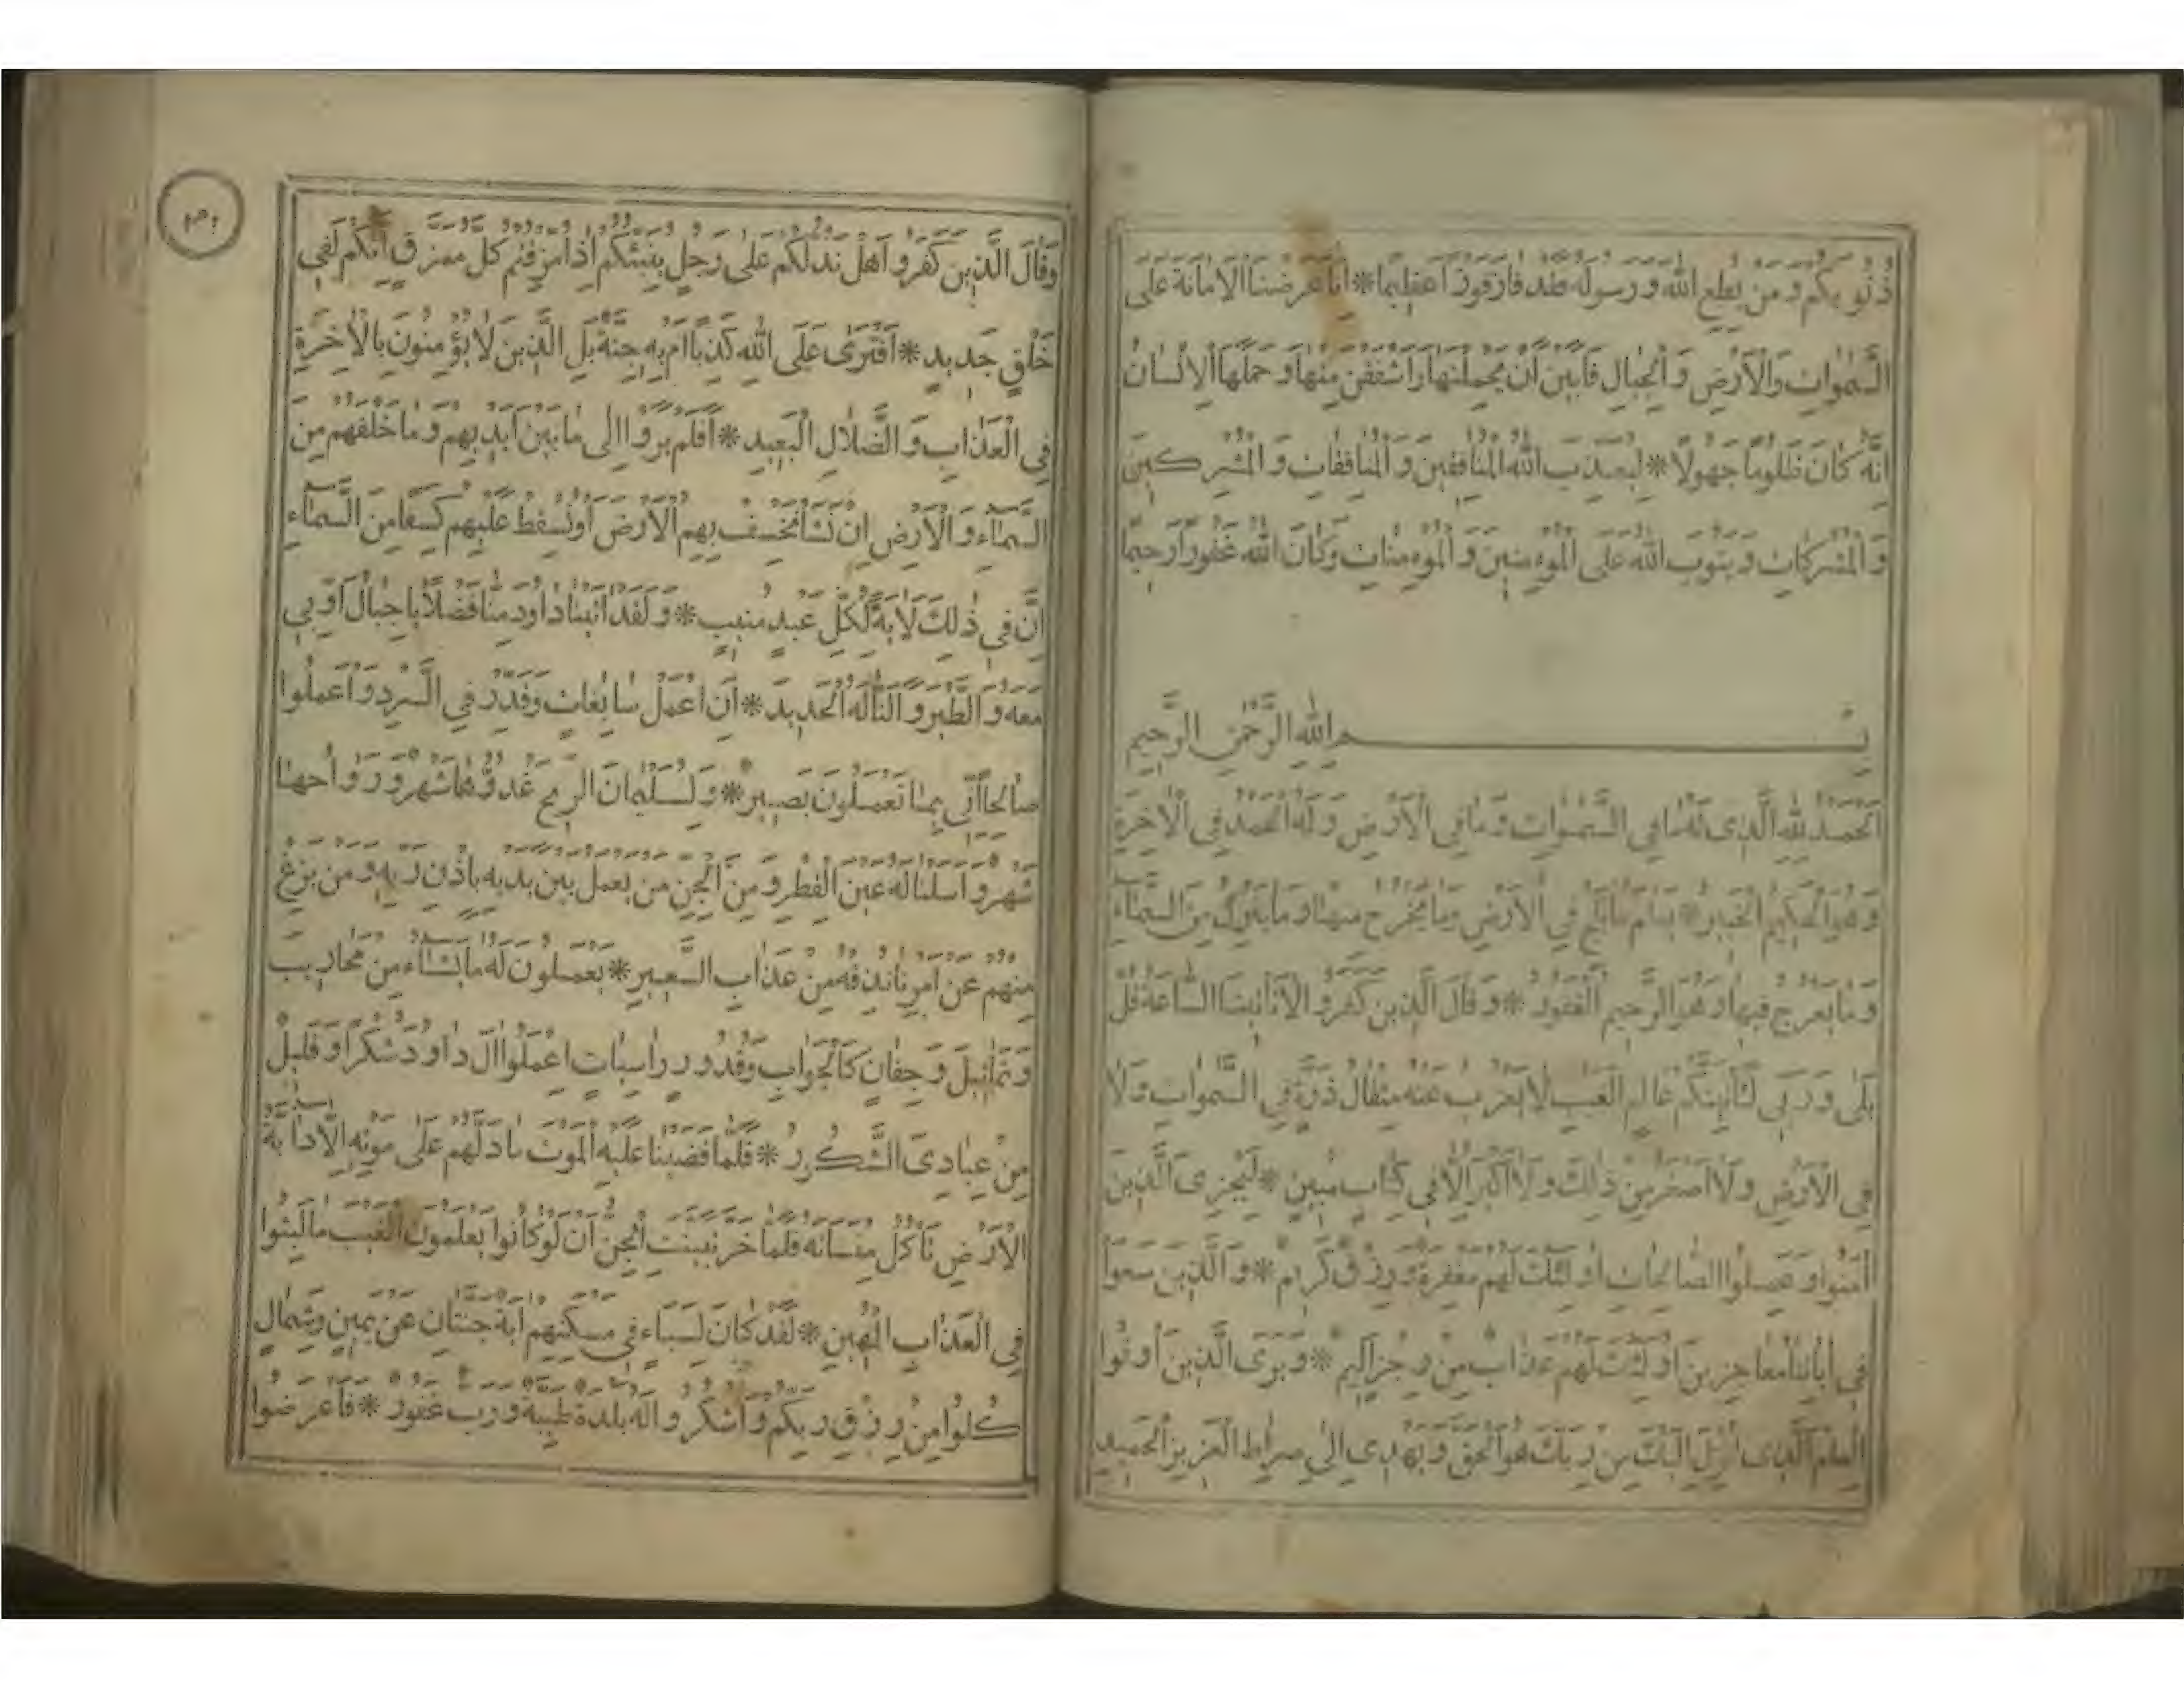 ذُنُوبَكُم وَمَن يُطِعِ اللّٰهَ وَرَسُولَهُ فَقَد فَازَ فَوزًا عَظِيمًا * اِنَّا عَرَضنَا الاَمَانَةَ عَلَى
السَّمٰوَاتِ وَالْاَرْضِ وَالْجِبَالِ فَاَبَيْنَ اَنْ يَحْمِلْنَهَا وَاَشْفَقْنَ مِنْهَا وَحَمَلَهَا الْاِنْسَانُ
اِنَّهُ كَانَ ظَلُومًا جَهُولًا * لِيُعَذِّبَ اللّٰهُ الْمُنَافِقِينَ وَالْمُنَافِقَاتِ وَالْمُشْرِكِينَ
وَالْمُشْرِكَاتِ وَيَتُوبَ اللّٰهُ عَلَى الْمُوءمِنِينَ وَالْمُوءمِنَاتِ وَكَانَ اللّٰهُ غَفُورًا رَحِيمًا
بِسْمِ اللّٰهِ الرَّحْمٰنِ الرَّحِيمِ
اَلْحَمْدُ لِلّٰهِ الَّذِى لَهُ مَا فِي السَّمٰوَاتِ وَمَا فِي الْاَرْضِ وَلَهُ الْحَمْدُ فِي الْاٰخِرَةِ
وَهُوَ الْحَكِيمُ الْخَبِيرُ * يَعْلَمُ مَا يَلِجُ فِي الْاَرْضِ وَمَا يَخْرُجُ مِنْهَا وَمَا يَنْزِلُ مِنَ السَّمَاءِ
وَمَا يَعْرُجُ فِيهَا وَهُوَ الرَّحِيمُ الْغَفُورُ * وَقَالَ الَّذِينَ كَفَرُوا لَا تَأْتِينَا السَّاعَةُ قُلْ
بَلٰى وَرَبِّي لَتَأْتِيَنَّكُمْ عَالِمِ الْغَيْبِ لَا يَعْزُبُ عَنْهُ مِثْقَالُ ذَرَّةٍ فِي السَّمٰوَاتِ وَلَا
فِي الْاَرْضِ وَلَا اَصْغَرُ مِنْ ذٰلِكَ وَلَا اَكْبَرُ اِلَّا فِي كِتَابٍ مُبِينٍ * لِيَجْزِىَ الَّذِينَ
اٰمَنُوا وَعَمِلُوا الصَّالِحَاتِ اُولٰئِكَ لَهُمْ مَغْفِرَةٌ وَرِزْقٌ كَرِيمٌ * وَالَّذِينَ سَعَوْا
فِي اٰيَاتِنَا مُعَاجِزِينَ اُولٰئِكَ لَهُمْ عَذَابٌ مِنْ رِجْزٍ اَلِيمٌ * وَيَرَى الَّذِينَ اُوتُوا
الْعِلْمَ الَّذِى اُنْزِلَ اِلَيْكَ مِنْ رَبِّكَ هُوَ الْحَقَّ وَيَهْدِي اِلٰى صِرَاطِ الْعَزِيزِ الْحَمِيدِ
وَقَالَ الَّذِينَ كَفَرُوا هَلْ نَدُلُّكُمْ عَلٰى رَجُلٍ يُنَبِّئُكُمْ اِذَا مُزِّقْتُمْ كُلَّ مُمَزَّقٍ اِنَّكُمْ لَفِي
خَلْقٍ جَدِيدٍ * اَفْتَرٰى عَلَى اللّٰهِ كَذِبًا اَمْ بِهِ جِنَّةٌ بَلِ الَّذِينَ لَا يُؤْمِنُونَ بِالْاٰخِرَةِ
فِي الْعَذَابِ وَالضَّلَالِ الْبَعِيدِ * اَفَلَمْ يَرَوْا اِلٰى مَا بَيْنَ اَيْدِيهِمْ وَمَا خَلْفَهُمْ مِنَ
السَّمَاءِ وَالْاَرْضِ اِنْ نَشَأْ نَخْسِفْ بِهِمُ الْاَرْضَ اَوْ نُسْقِطْ عَلَيْهِمْ كِسَفًا مِنَ السَّمَاءِ
اِنَّ فِي ذٰلِكَ لَاٰيَةً لِكُلِّ عَبْدٍ مُنِيبٍ * وَلَقَدْ اٰتَيْنَا دَاوُدَ مِنَّا فَضْلًا يَا جِبَالُ اَوِّبِي
مَعَهُ وَالطَّيْرَ وَاَلَنَّا لَهُ الْحَدِيدَ * اَنِ اعْمَلْ سَابِغَاتٍ وَقَدِّرْ فِي السَّرْدِ وَاعْمَلُوا
صَالِحًا اِنِّى بِمَا تَعْمَلُونَ بَصِيرٌ * وَلِسُلَيْمَانَ الرِّيحَ غُدُوُّهَا شَهْرٌ وَرَوَاحُهَا
شَهْرٌ وَاَسَلْنَا لَهُ عَيْنَ الْقِطْرِ وَمِنَ الْجِنِّ مَنْ يَعْمَلُ بَيْنَ يَدَيْهِ بِاِذْنِ رَبِّهِ وَمَنْ يَزِغْ
مِنْهُمْ عَنْ اَمْرِنَا نُذِقْهُ مِنْ عَذَابِ السَّعِيرِ * يَعْمَلُونَ لَهُ مَا يَشَاءُ مِنْ مَحَارِيبَ
وَتَمَاثِيلَ وَجِفَانٍ كَالْجَوَابِ وَقُدُورٍ رَاسِيَاتٍ اِعْمَلُوا اٰلَ دَاوُدَ شُكْرًا وَقَلِيلٌ
مِنْ عِبَادِىَ الشَّكُورُ * فَلَمَّا قَضَيْنَا عَلَيْهِ الْمَوْتَ مَا دَلَّهُمْ عَلٰى مَوْتِهِ اِلَّا دَابَّةُ
الْاَرْضِ تَاْكُلُ مِنْسَاَتَهُ فَلَمَّا خَرَّ تَبَيَّنَتِ الْجِنُّ اَنْ لَوْ كَانُوا يَعْلَمُونَ الْغَيْبَ مَا لَبِثُوا
فِي الْعَذَابِ الْمُهِينِ * لَقَدْ كَانَ لِسَبَاءٍ فِي مَسْكَنِهِمْ اٰيَةٌ جَنَّتَانِ عَنْ يَمِينٍ وَشِمَالٍ
كُلُوا مِنْ رِزْقِ رَبِّكُمْ وَاشْكُرُوا لَهُ بَلْدَةٌ طَيِّبَةٌ وَرَبٌّ غَفُورٌ * فَاَعْرَضُوا